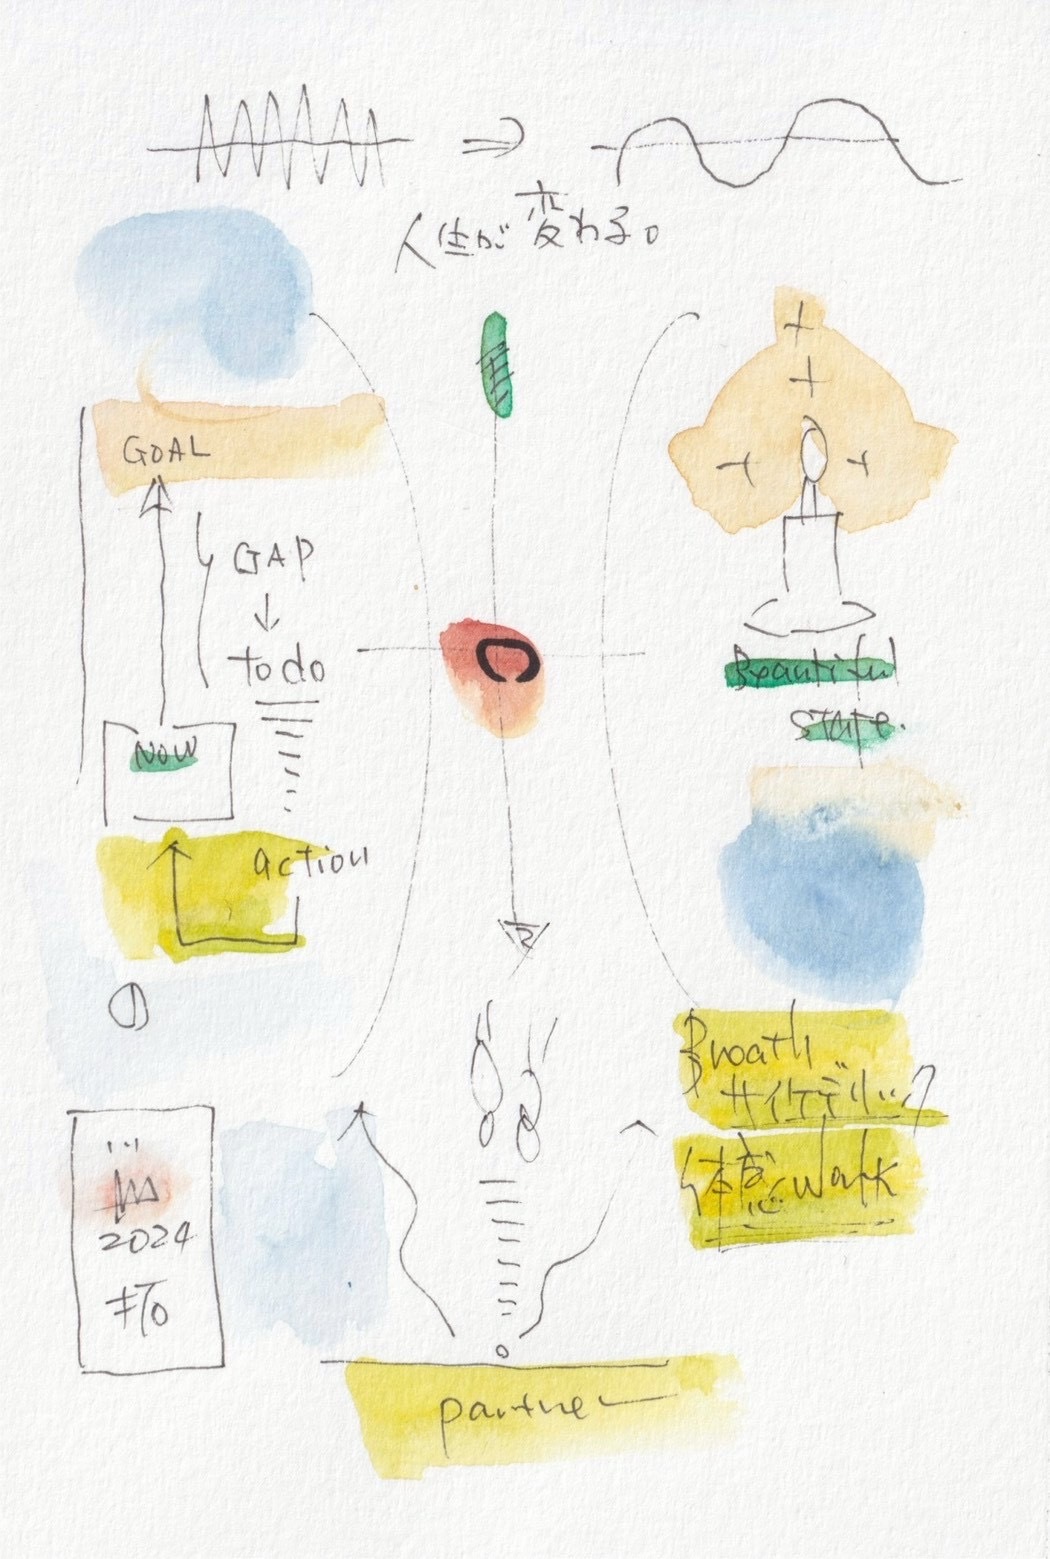 人生が変わる。
GOAL
GAP
to do
NOW
action
Beautiful
state.
Breath
サイケデリック
体感 work
2024
partner